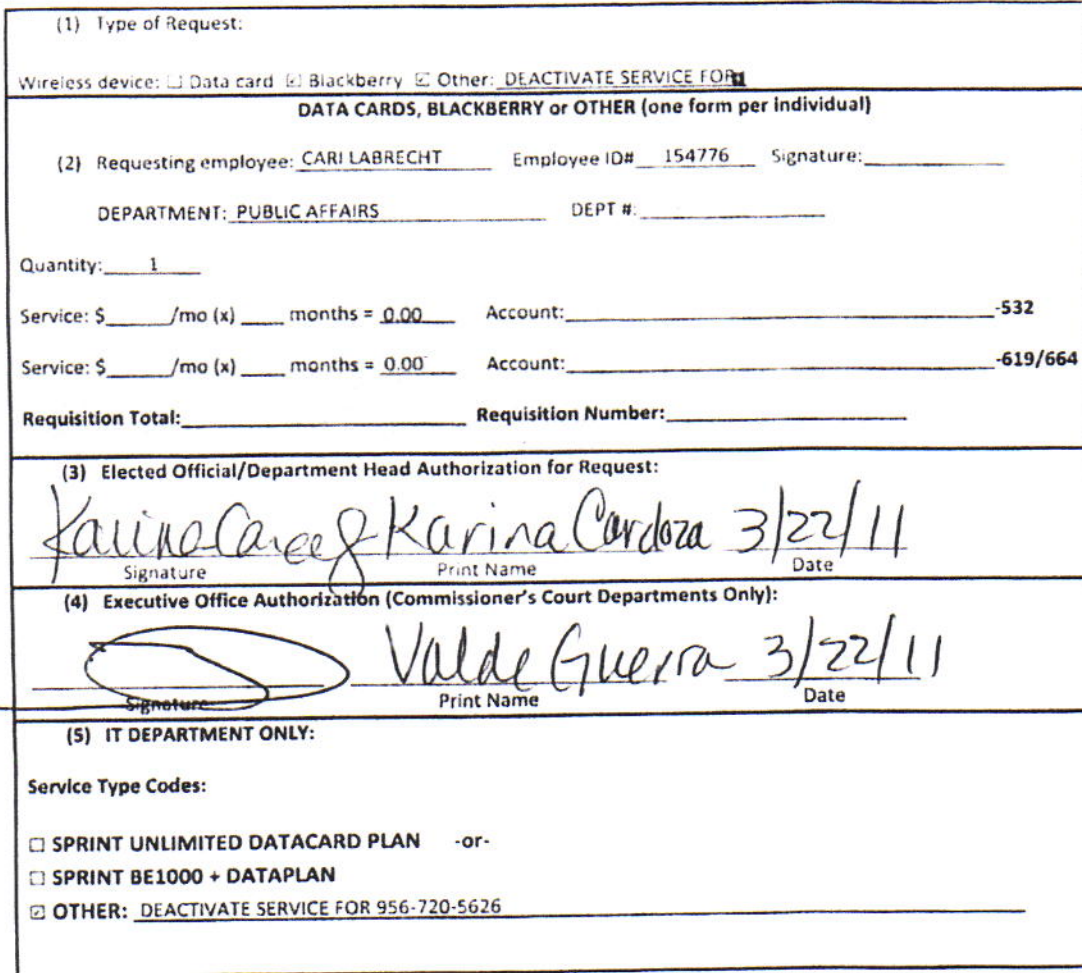 (1) Type of Request:
Wireless device: ☐ Data card ☑ Blackberry ☑ Other: DEACTIVATE SERVICE FOR
DATA CARDS, BLACKBERRY or OTHER (one form per individual)
(2) Requesting employee: CARI LABRECHT Employee ID# 154776 Signature:
DEPARTMENT: PUBLIC AFFAIRS DEPT #:
Quantity: 1
Service: $ /mo (x) months = 0.00 Account: -532
Service: $ /mo (x) months = 0.00 Account: -619/664
Requisition Total: Requisition Number:
(3) Elected Official/Department Head Authorization for Request:
Karina Cardoza 3/22/11
Signature Print Name Date
(4) Executive Office Authorization (Commissioner's Court Departments Only):
Valde Guerra 3/22/11
Signature Print Name Date
(5) IT DEPARTMENT ONLY:
Service Type Codes:
☐ SPRINT UNLIMITED DATACARD PLAN -or-
☐ SPRINT BE1000 + DATAPLAN
☑ OTHER: DEACTIVATE SERVICE FOR 956-720-5626